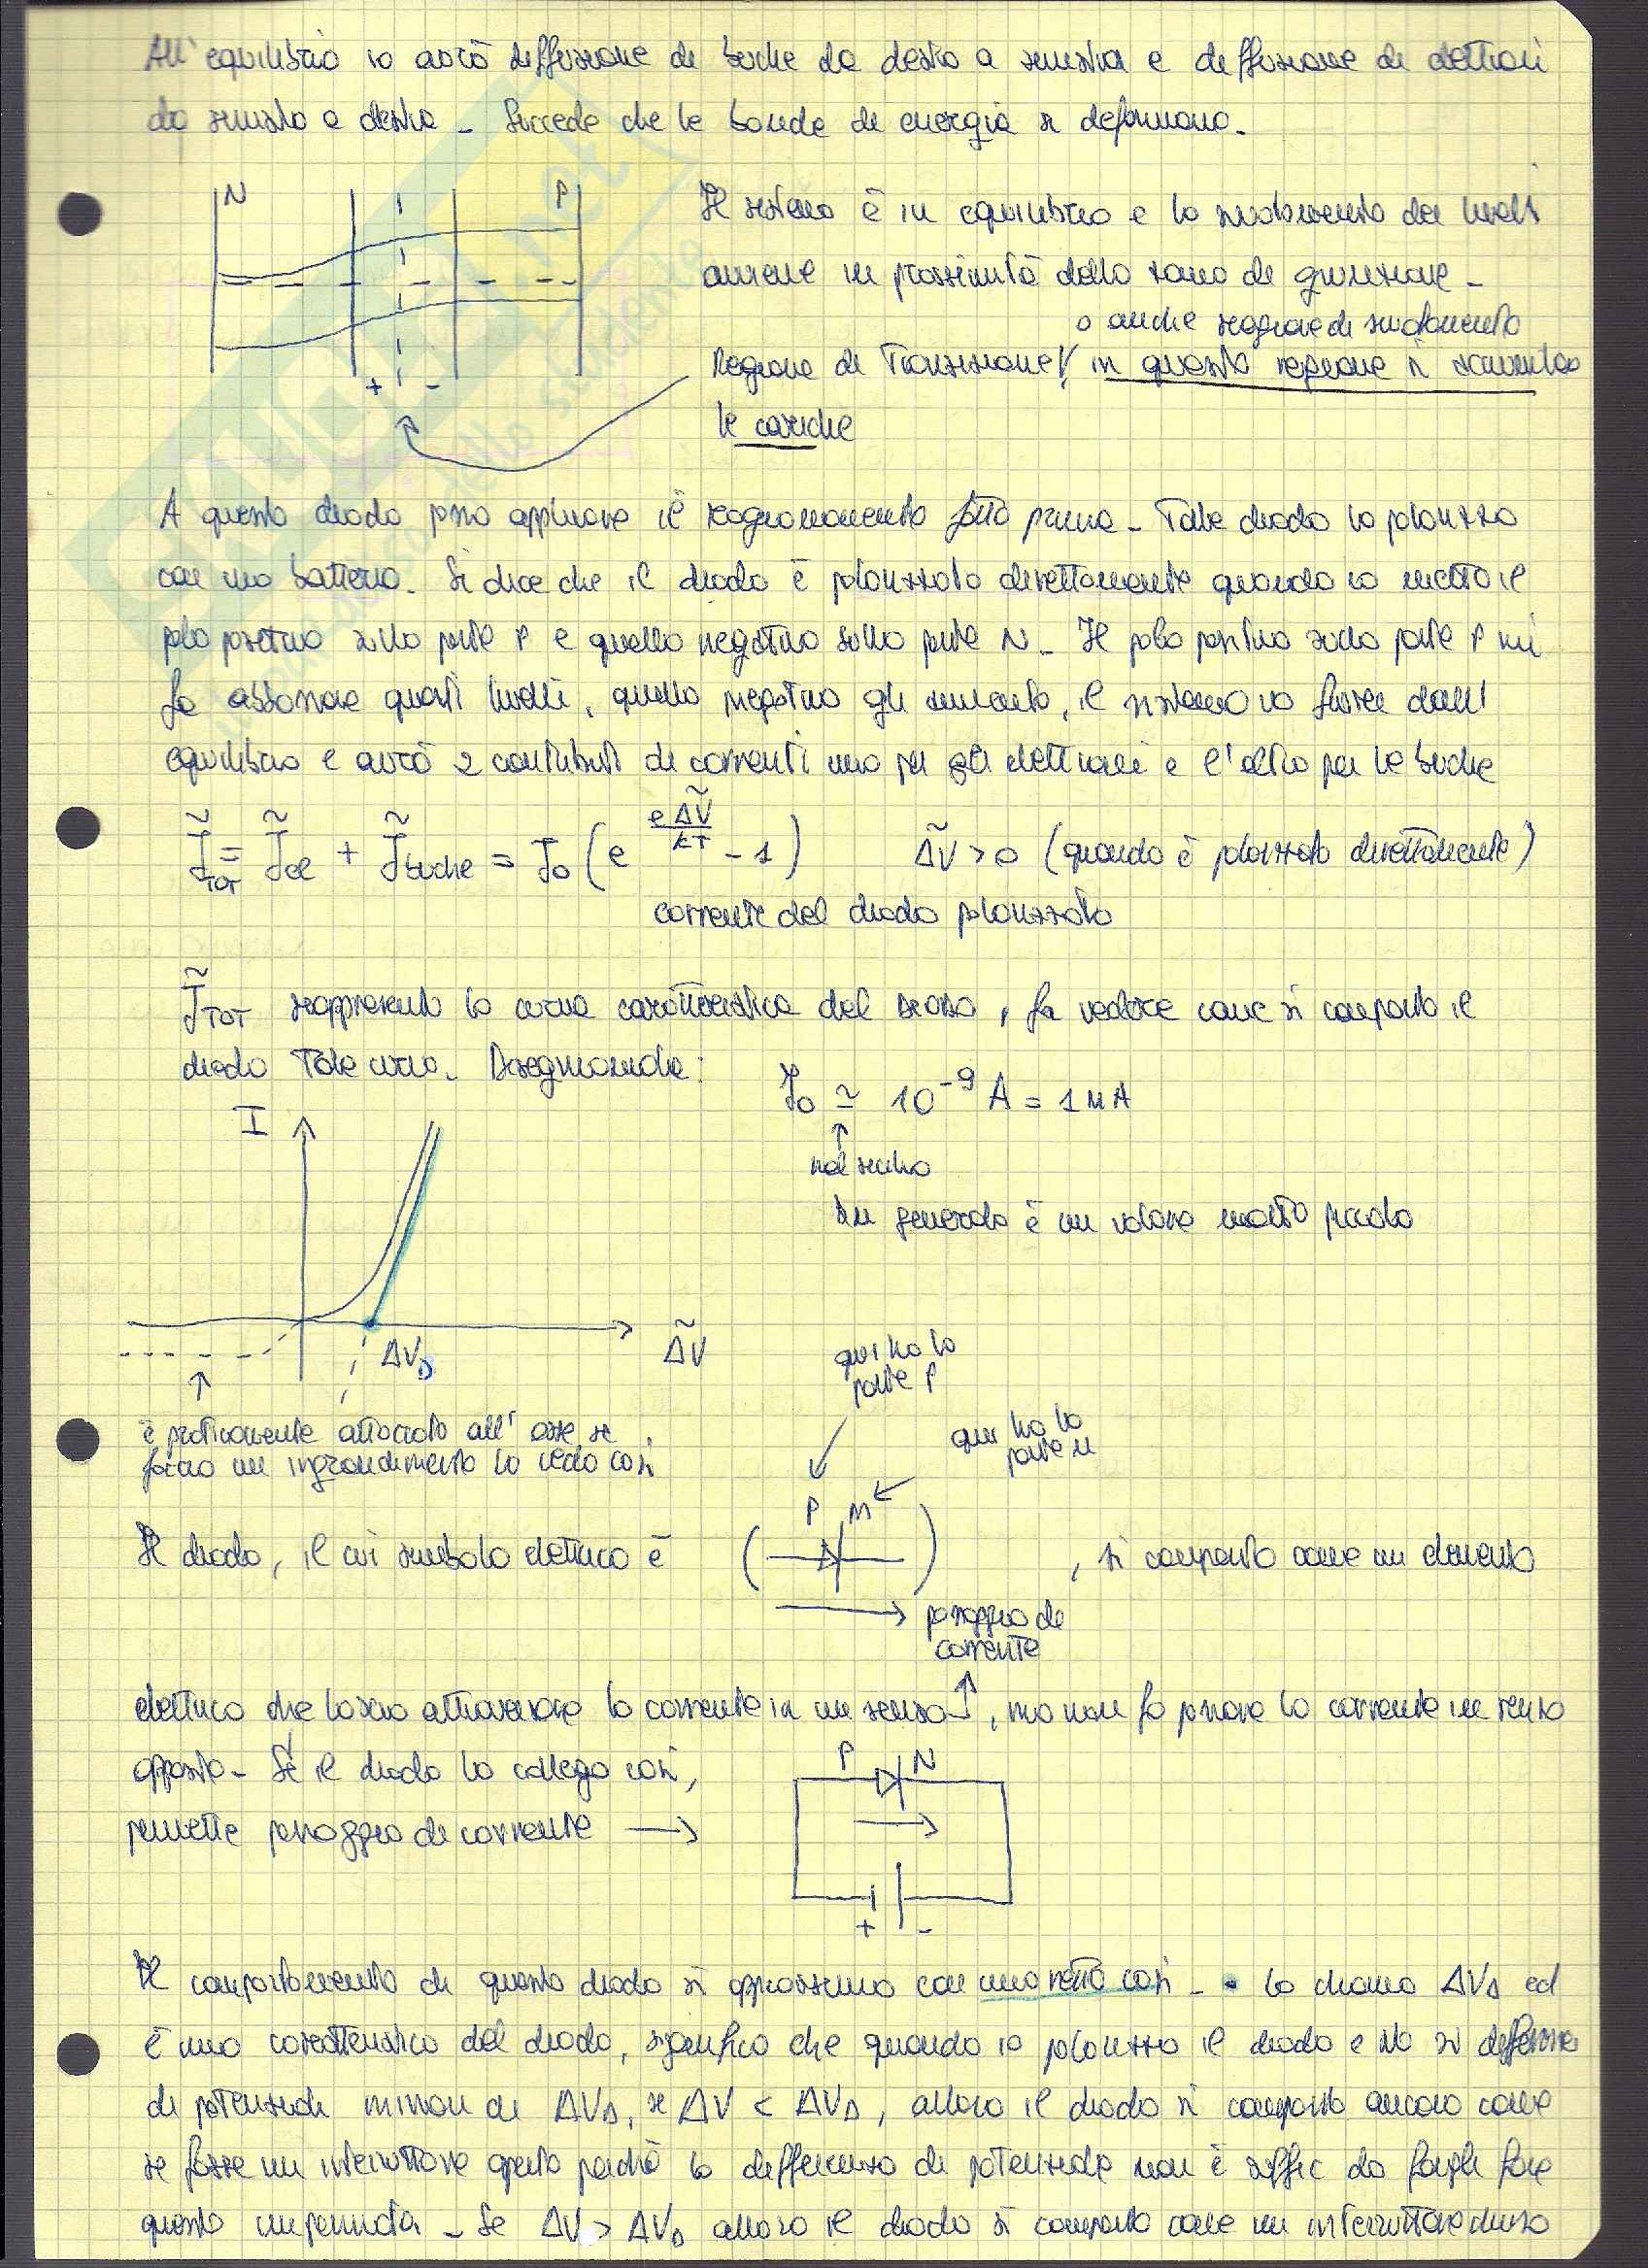 All'equilibrio io avrò diffusione di buche da destra a sinistra e diffusione di elettroni
da sinistra a destra - Succede che le bande di energia si deformano.
N P
Il sistema è in equilibrio e lo svuotamento dei livelli
avviene in prossimità della zona di giunzione -
o anche regione di svuotamento
Regione di Transizione, in questa regione si accumulano
+ -
le cariche
A questo diodo posso applicare il ragionamento fatto prima - Tale diodo lo polarizzo
con una batteria. Si dice che il diodo è polarizzato direttamente quando io metto il
polo positivo sulla parte P e quello negativo sulla parte N - Il polo positivo sulla parte P mi
fa abbassare questi livelli, quello negativo gli aumenta, il sistema va fuori dall'
equilibrio e avrò 2 contributi di correnti uno per gli elettroni e l'altro per le buche
J̃TOT = J̃el + J̃buche = J0 (e^(eΔṼ/kT) - 1) ΔṼ > 0 (quando è polarizzato direttamente)
corrente del diodo polarizzato
J̃TOT rappresenta la curva caratteristica del diodo, fa vedere come si comporta il
diodo Tale curva. Disegnandola:
J0 ≃ 10^-9 A = 1 nA
I
In generale è un valore molto piccolo
ΔVD ΔṼ
qui ho la
parte P
qui ho la
parte N
è praticamente attaccata all'asse se
faccio un ingrandimento lo vedo così
P N
Il diodo, il cui simbolo elettrico è ( ) , si comporta come un elemento
passaggio di
corrente
elettrico che lascia attraversare la corrente in un senso, ma non fa passare la corrente in senso
opposto - Se il diodo lo collego così,
P N
permette passaggio di corrente →
+ -
Il comportamento di questo diodo si approssima con una retta così - • lo chiamo ΔVD ed
è una caratteristica del diodo, significa che quando io polarizzo il diodo e do differenze
di potenziale minori di ΔVD, se ΔV < ΔVD, allora il diodo si comporta ancora come
se fosse un interruttore aperto perché la differenza di potenziale non è suffic da fargli fare
questa impennata - Se ΔV > ΔVD allora il diodo si comporta come un interruttore chiuso